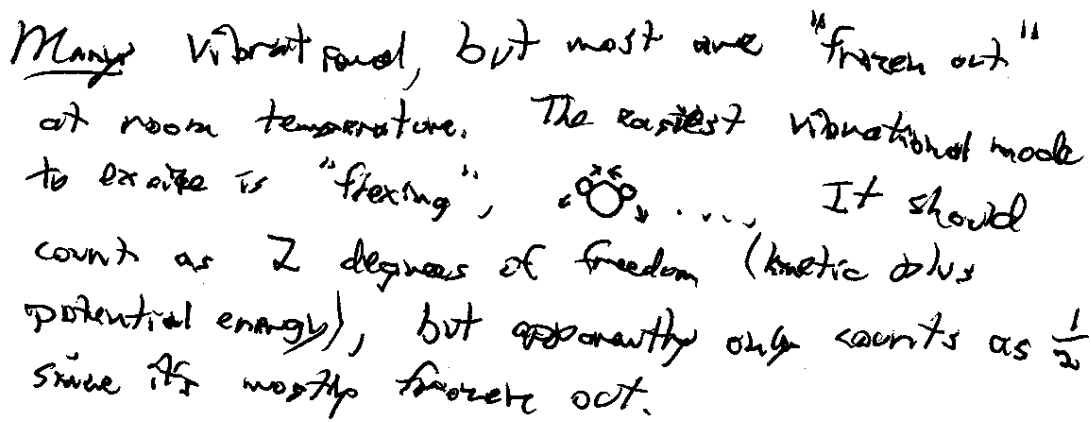 Many vibrational, but most are "frozen out"
at room temperature. The easiest vibrational mode
to excite is "flexing", ...., It should
count as 2 degrees of freedom (kinetic plus
potential energy), but apparently only counts as 1/2
since its mostly frozen out.